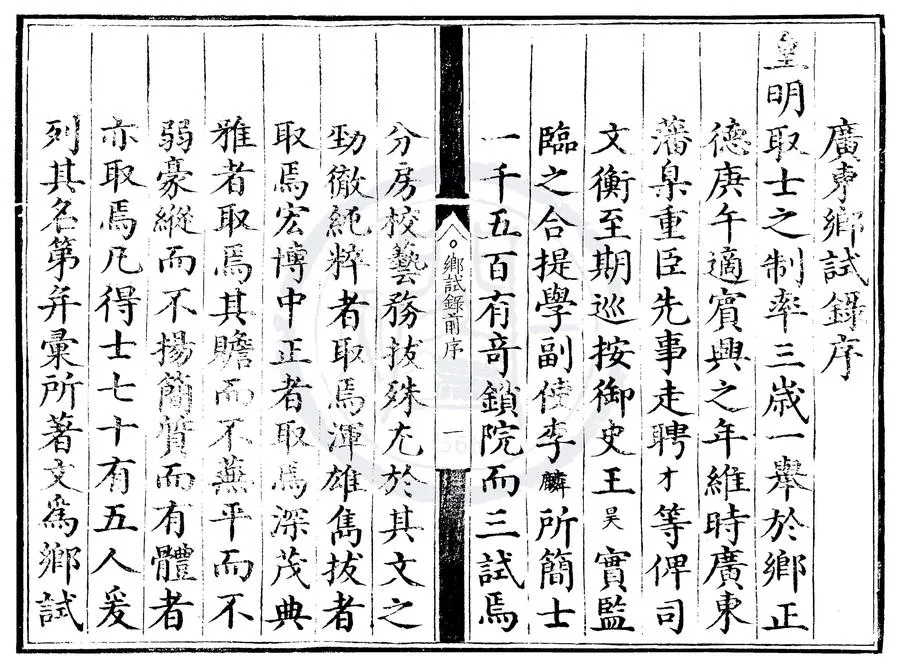 廣東鄉試錄序
皇明取士之制率三歲一舉於鄉正
德庚午適賓興之年維時廣東
藩臬重臣先事走聘才等俾司
文衡至期巡按御史王昊實監
臨之合提學副使李麟所簡士
一千五百有奇鎖院而三試焉
鄉試錄前序 一
分房校藝務拔殊尤於其文之
勁徹純粹者取焉渾雄雋拔者
取焉宏博中正者取焉深茂典
雅者取焉其贍而不蕪平而不
弱豪縱而不揚簡質而有體者
亦取焉凡得士七十有五人爰
列其名第并彙所著文為鄉試